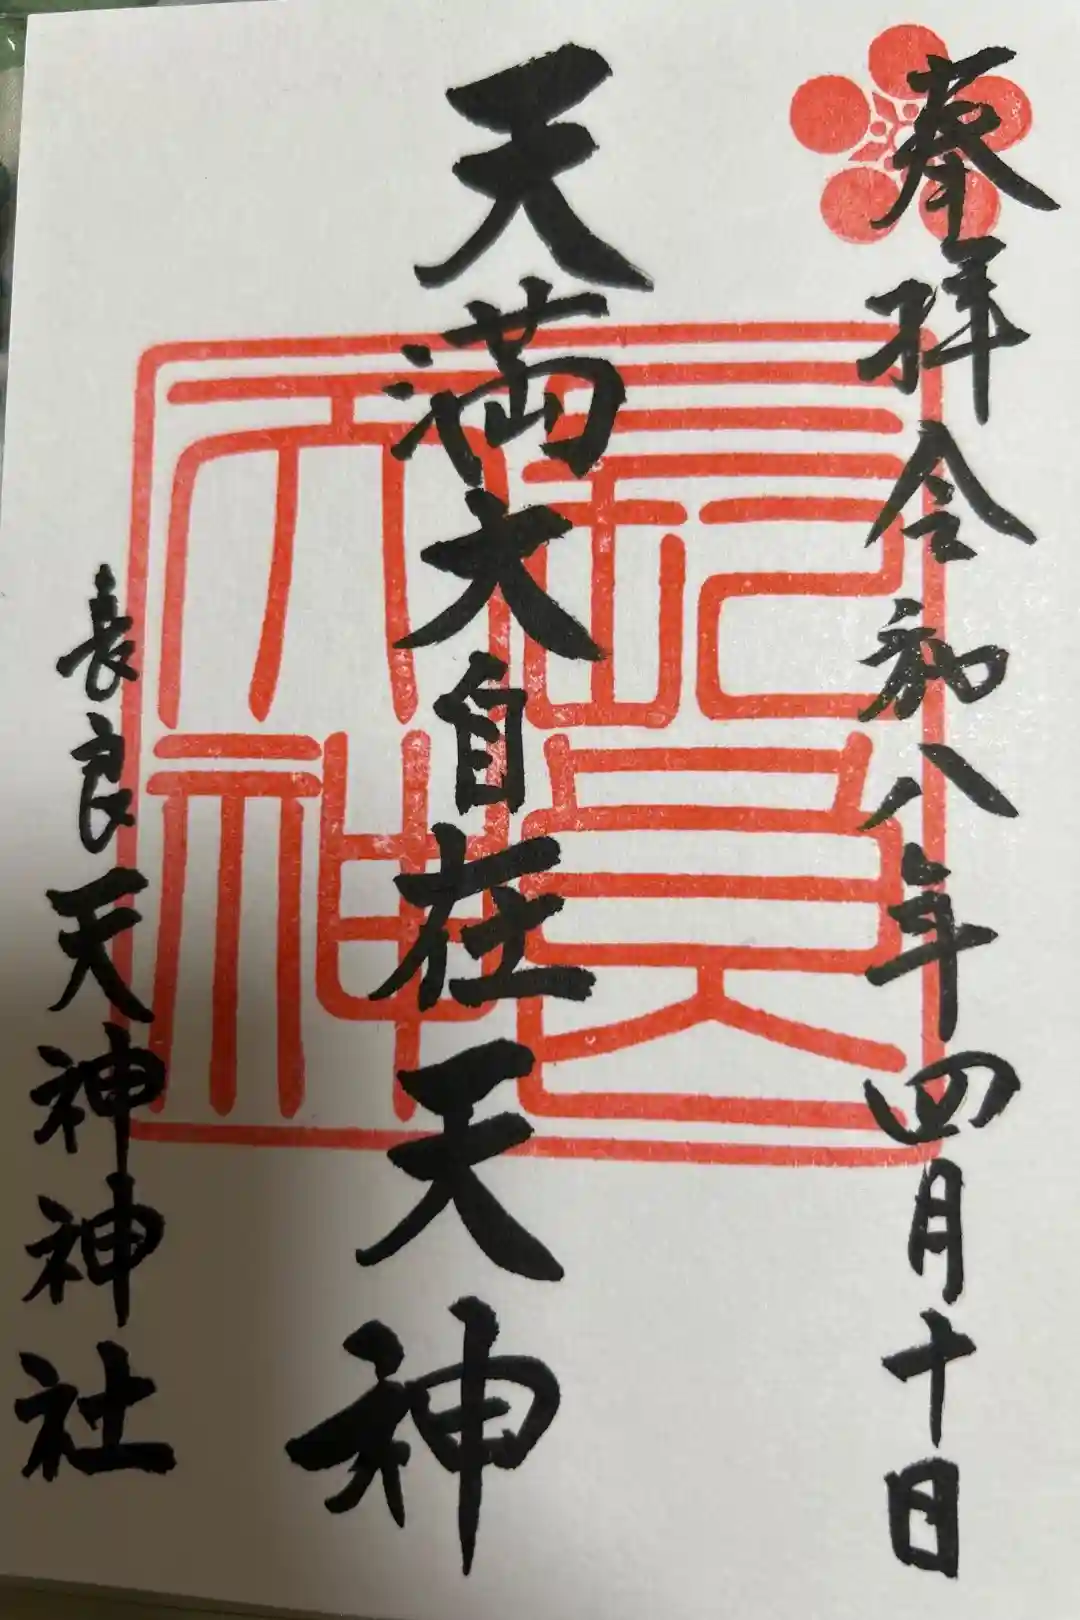 奉拝令和八年四月十日
天満大自在天神
長良天神神社
長良
天神